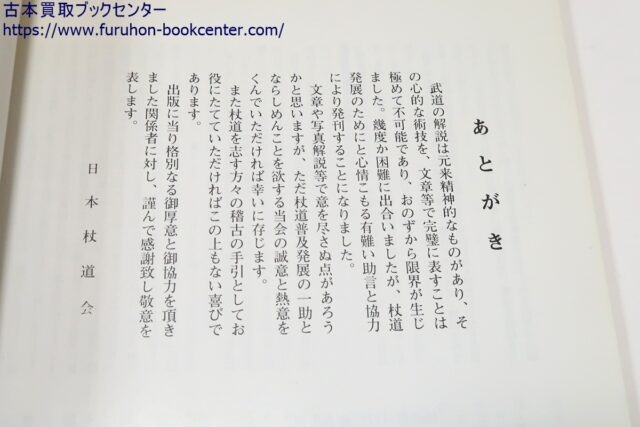 古本買取ブックセンター
https://www.furuhon-bookcenter.com/
あとがき
武道の解説は元来精神的なものがあり、そ
の心的な術技を、文章等で完璧に表すことは
極めて不可能であり、おのずから限界が生じ
ました。幾度か困難に出合いましたが、杖道
発展のためにと心情こもる有難い助言と協力
により発刊することになりました。
文章や写真解説等で意を尽さぬ点があろう
かと思いますが、ただ杖道普及発展の一助と
ならしめんことを欲する当会の誠意と熱意を
くんでいただければ幸いに存じます。
また杖道を志す方々の稽古の手引としてお
役にたてていただければこの上もない喜びで
あります。
出版に当り格別なる御厚意と御協力を頂き
ました関係者に対し、謹んで感謝致し敬意を
表します。
日本杖道会